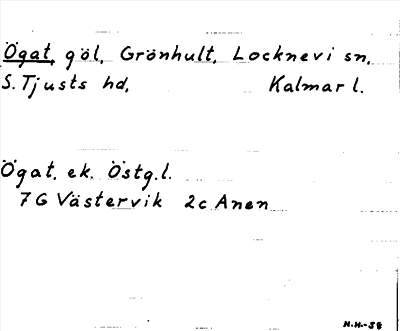 Ögat, göl, Grönhult, Locknevi sn,
S. Tjusts hd, Kalmar l.
Ögat. ek. Östg.l.
7G Västervik 2c Anen
H.H.-58